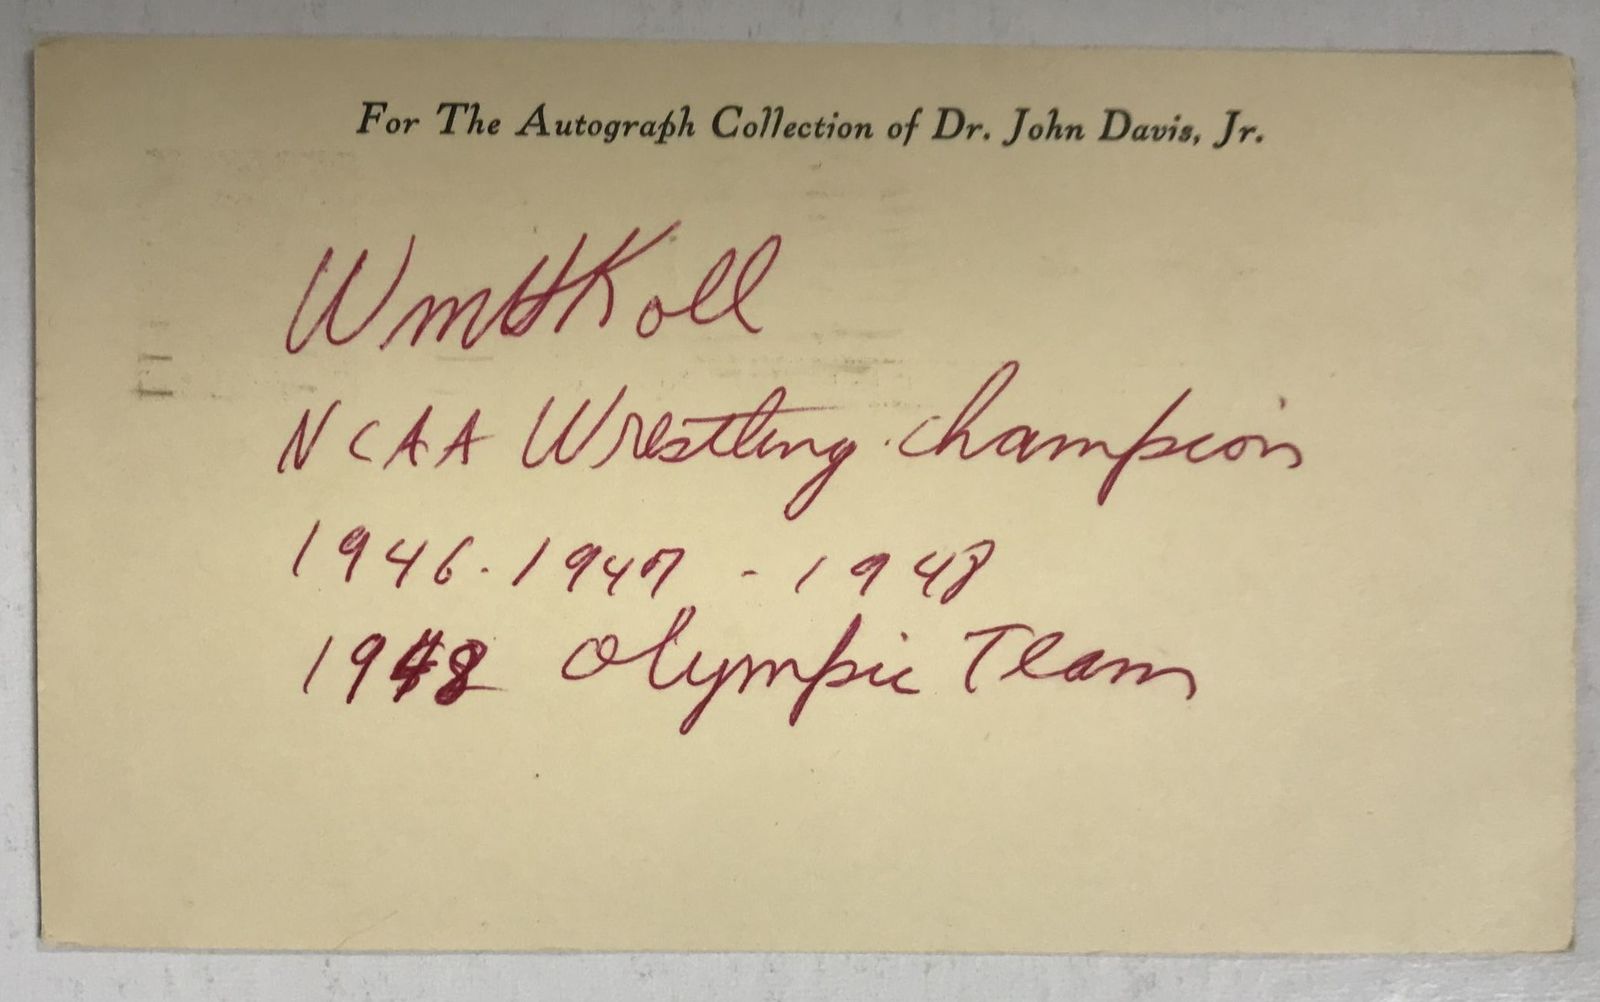 For The Autograph Collection of Dr. John Davis, Jr.
Wm H Koll
NCAA Wrestling Champion
1946 - 1947 - 1948
1948 Olympic Team